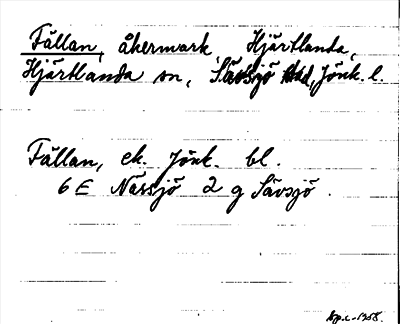 Fällan, åkermark Hjärtlanda,
Hjärtlanda sn, Sävsjö stad, Jönk. l.
Fällan, ek. Jönk. bl.
6 E Nässjö 2 g Sävsjö.